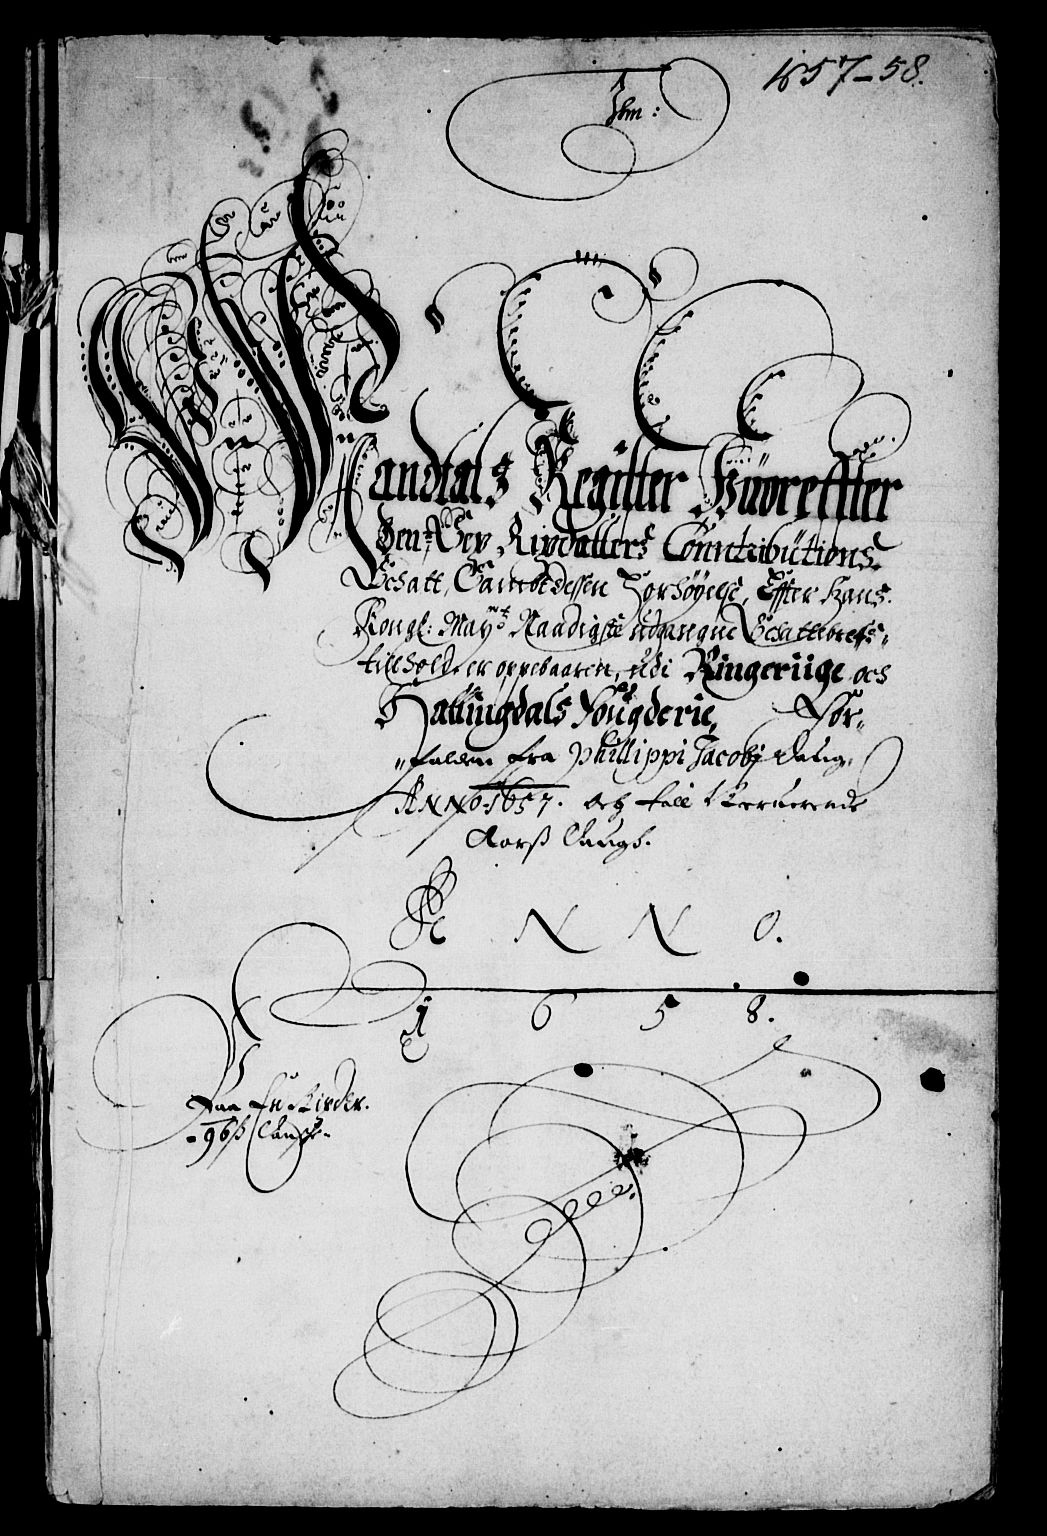 1657-58.
Mandtals Register Huoreffter
den Rixdallers Conntributions
Schatt, Sampt dessen Forhøyelse, Effter Hans
Kongl: May:tz Naadigste udgangne Schattebrefs
tilhold, er oppebaaren, udi Ringeriige och
Hallingdals Fougderie, For-
falden fra Phillippi Jacobj Daug,
ANNO 1657. och till
Aarß Daugh.
ANNO.
1658.